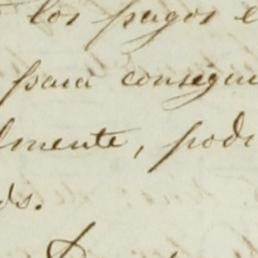 los pagos e
para consegui
lmente, pod
ds.